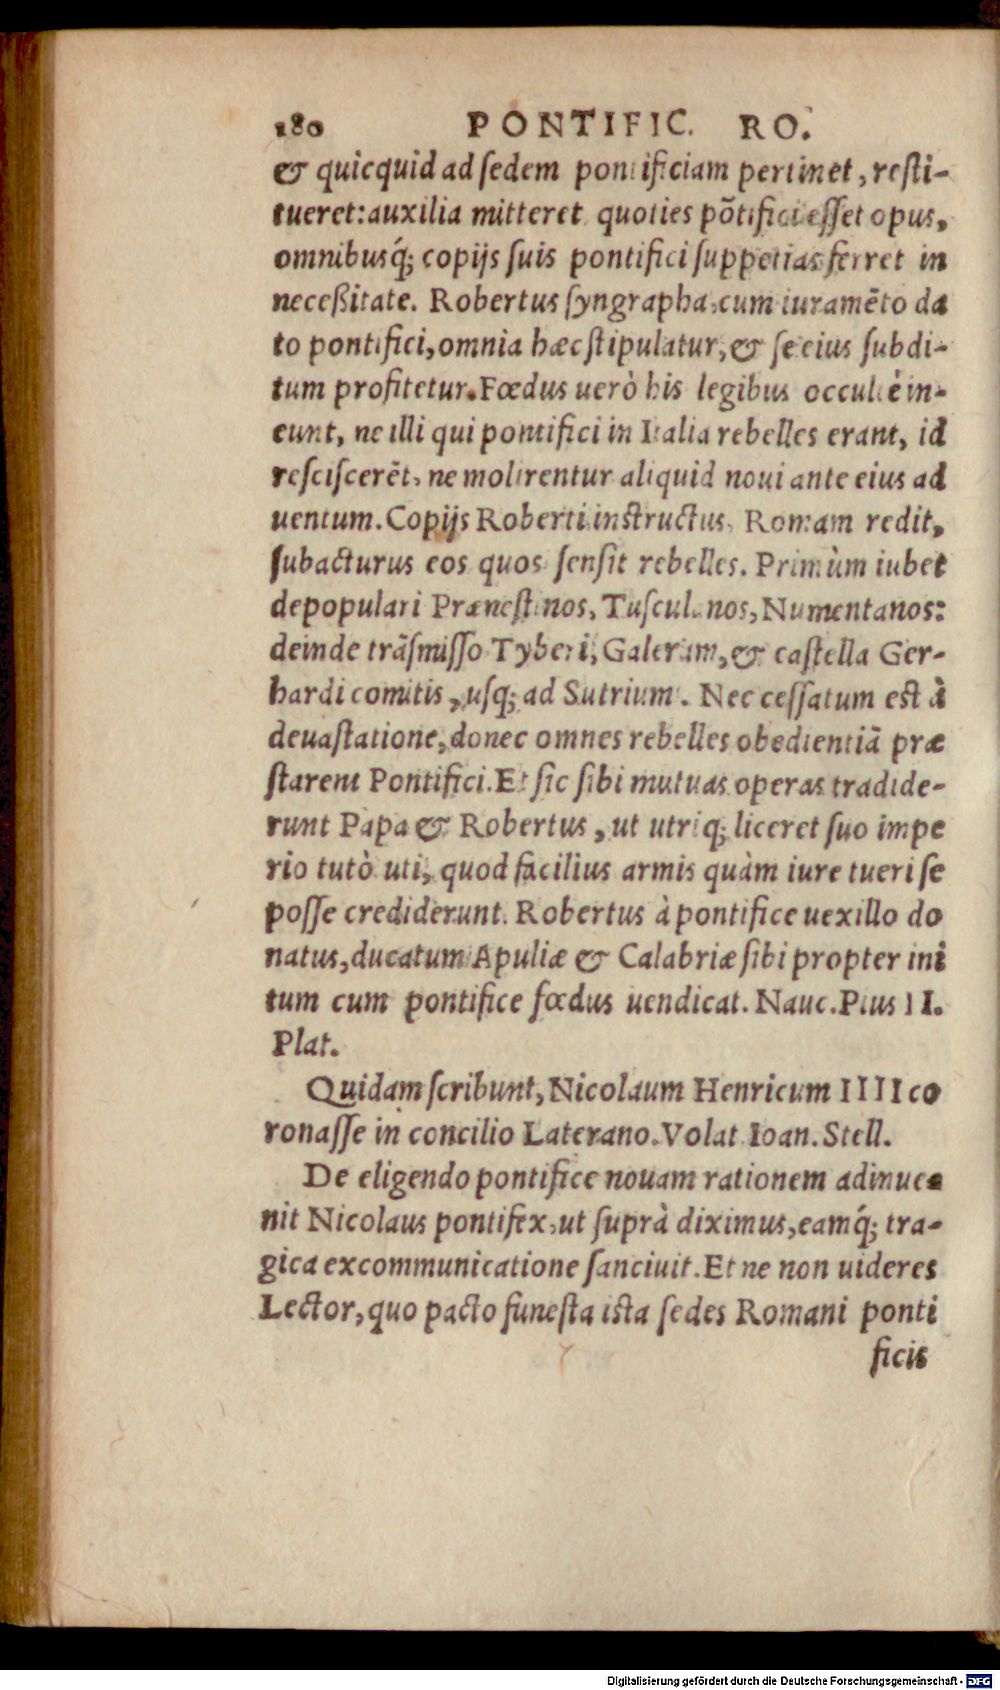 180 PONTIFIC. RO.
& quicquid ad ſedem pontificiam pertinet, reſti-
tueret: auxilia mitteret quoties põtifici eſſet opus,
omnibusq́; copijs ſuis pontifici ſuppetias ferret in
neceßitate. Robertus ſyngrapha, cum iuramẽto da
to pontifici, omnia hæc ſtipulatur, & ſe eius ſubdi-
tum profitetur. Fœdus uerò his legibus occultè in-
eunt, ne illi qui pontifici in Italia rebelles erant, id
reſciſcerẽt, ne molirentur aliquid noui ante eius ad
uentum. Copijs Roberti inſtructus, Romam redit,
ſubacturus eos quos ſenſit rebelles. Primùm iubet
depopulari Præneſtinos, Tuſculanos, Numentanos:
deinde trãſmiſſo Tyberi, Galeriam, & caſtella Ger-
hardi comitis, uſq; ad Sutrium. Nec ceſſatum eſt à
deuaſtatione, donec omnes rebelles obedientiã præ
ſtarent Pontifici. Et ſic ſibi mutuas operas tradide-
runt Papa & Robertus, ut utriq; liceret ſuo impe
rio tutò uti, quod facilius armis quàm iure tueri ſe
poſſe crediderunt. Robertus à pontifice uexillo do
natus, ducatum Apuliæ & Calabriæ ſibi propter ini
tum cum pontifice fœdus uendicat. Nauc. Pius II.
Plat.
Quidam ſcribunt, Nicolaum Henricum IIII co
ronaſſe in concilio Laterano. Volat. Ioan. Stell.
De eligendo pontifice nouam rationem adinue-
nit Nicolaus pontifex, ut ſuprà diximus, eamq́; tra-
gica excommunicatione ſanciuit. Et ne non uideres
Lector, quo pacto funeſta iſta ſedes Romani ponti
ficis
Digitalisierung gefördert durch die Deutsche Forschungsgemeinschaft - DFG